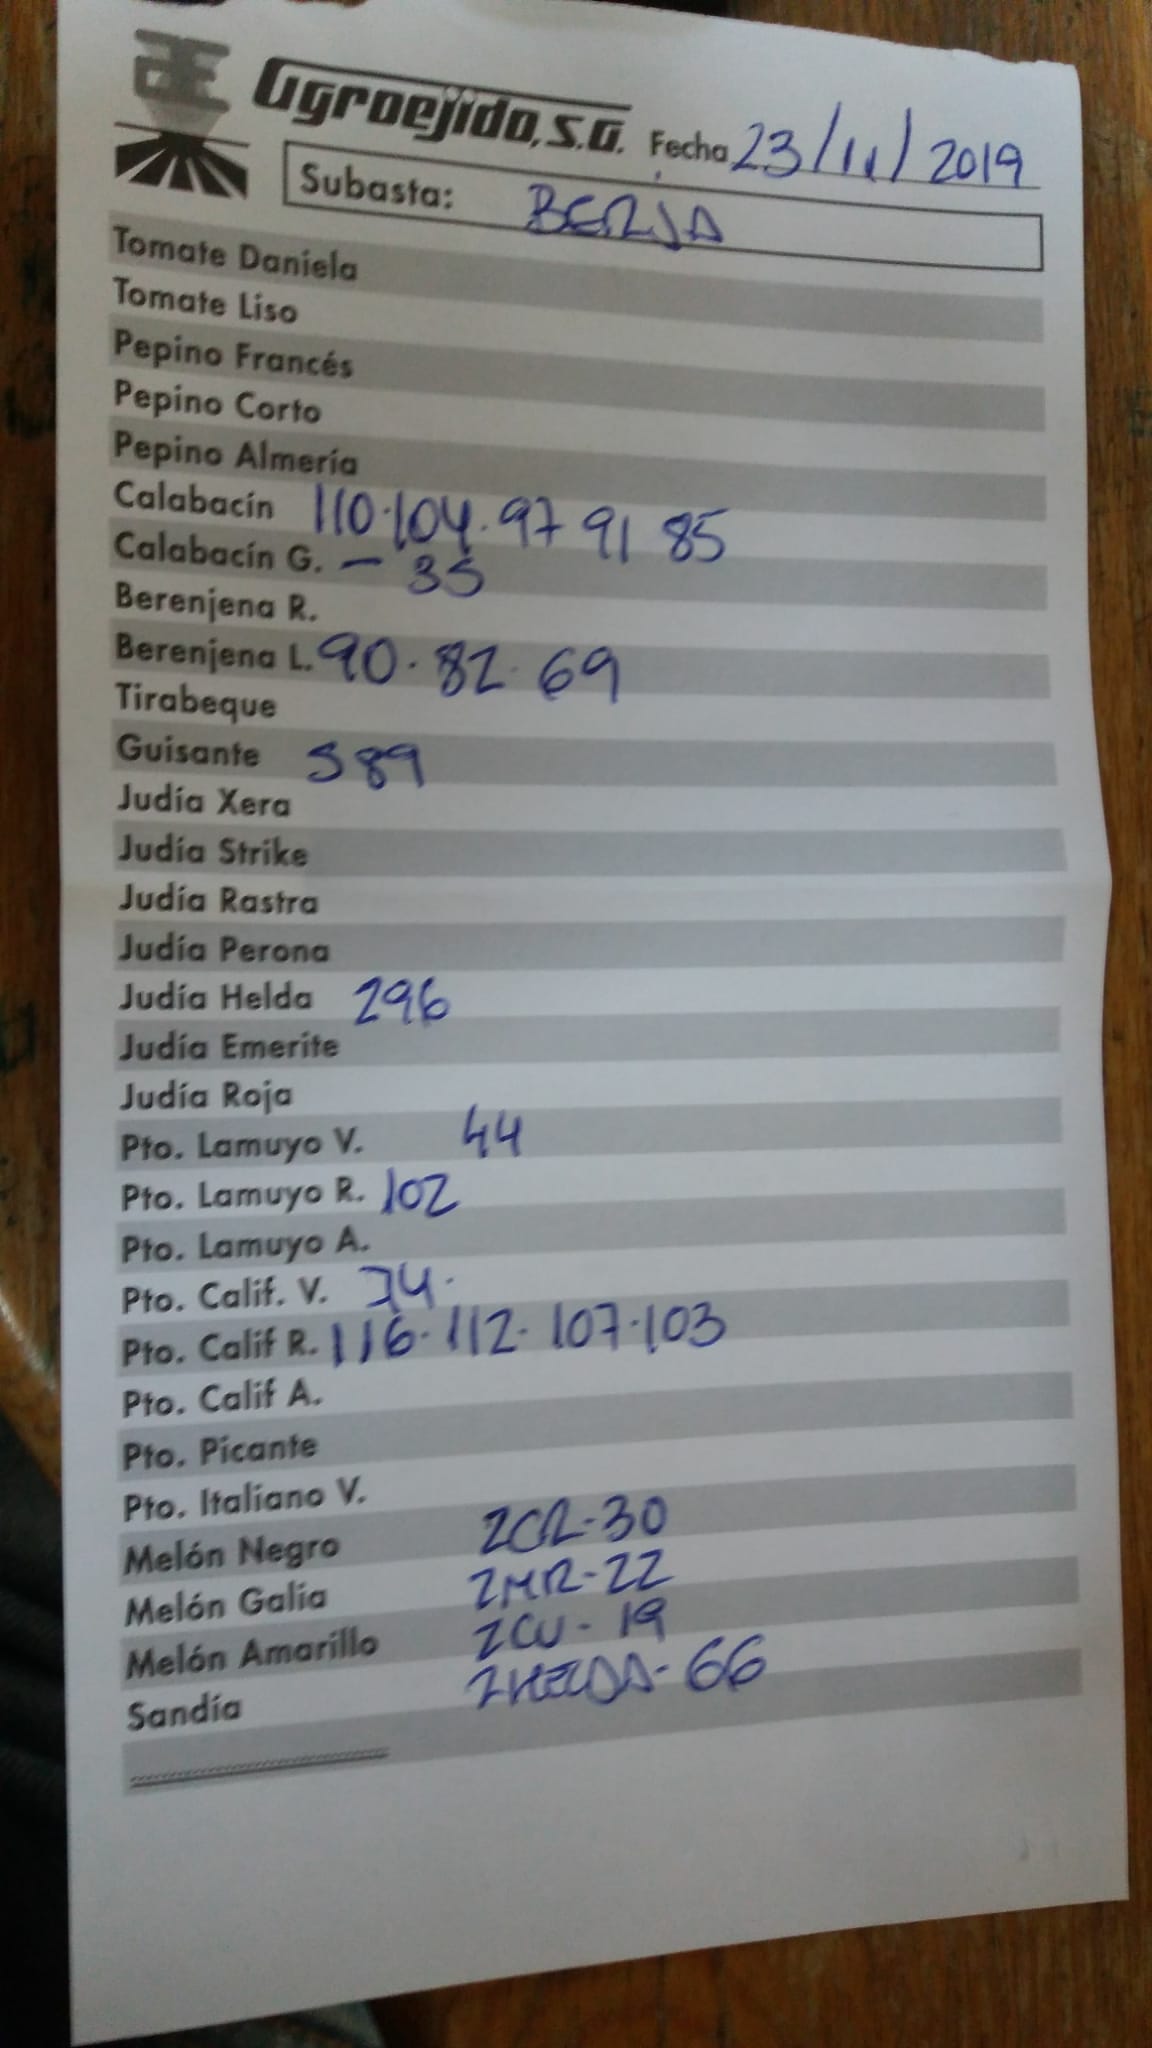 Agroejido, S.A. Fecha 23/11/2019
Subasta: BERJA
Tomate Daniela
Tomate Liso
Pepino Francés
Pepino Corto
Pepino Almería
Calabacín 110·104·97 91 85
Calabacín G. — 35
Berenjena R.
Berenjena L. 90·82·69
Tirabeque
Guisante 589
Judía Xera
Judía Strike
Judía Rastra
Judía Perona
Judía Helda 296
Judía Emerite
Judía Roja
Pto. Lamuyo V. 44
Pto. Lamuyo R. 102
Pto. Lamuyo A.
Pto. Calif. V. 74·
Pto. Calif R. 116·112·107·103
Pto. Calif A.
Pto. Picante
Pto. Italiano V.
Melón Negro 2CR-30
Melón Galia 2MR-22
Melón Amarillo 2CV-19
Sandía 2HELDA-66